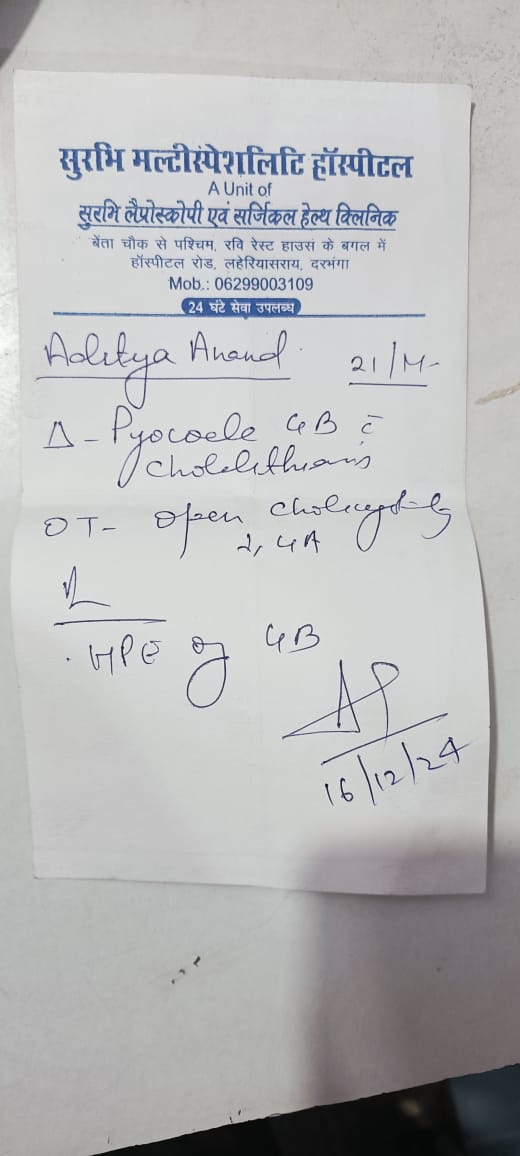 सुरभि मल्टीस्पेशलिटि हॉस्पीटल
A Unit of
सुरभि लैप्रोस्कोपी एवं सर्जिकल हेल्थ क्लिनिक
बेंता चौक से पश्चिम, रवि रेस्ट हाउस के बगल में
हॉस्पीटल रोड, लहेरियासराय, दरभंगा
Mob.: 06299003109
24 घंटे सेवा उपलब्ध
Aditya Anand 21/M
Δ - Pyocoele GB c̄
Cholelithiasis
OT - Open
GA
HPE of GB
16/12/24